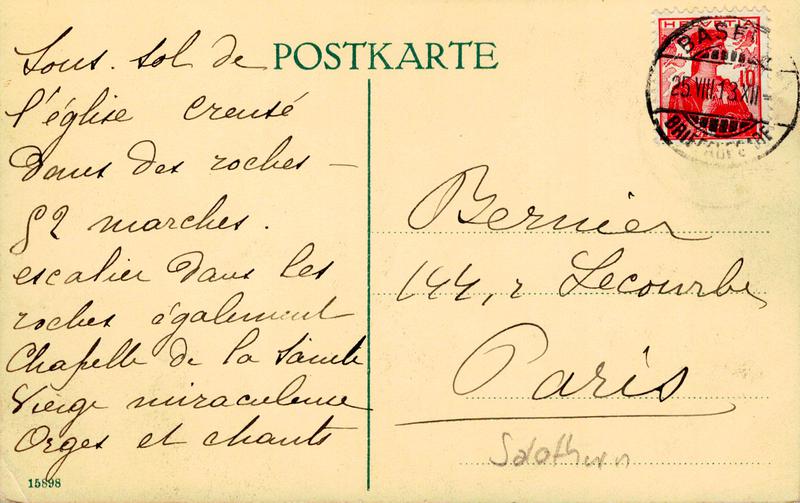 POSTKARTE
Sous-sol de
l'église creusé
dans des roches —
52 marches.
escalier dans les
roches également
Chapelle de la Sainte
Vierge miraculeuse
Orges et chants
15898
HELVETIA
10
BASEL
25.VIII.13.XII-
BRIEFAUFGABE
Bernier
144, r Lecourbe
Paris
Solothurn